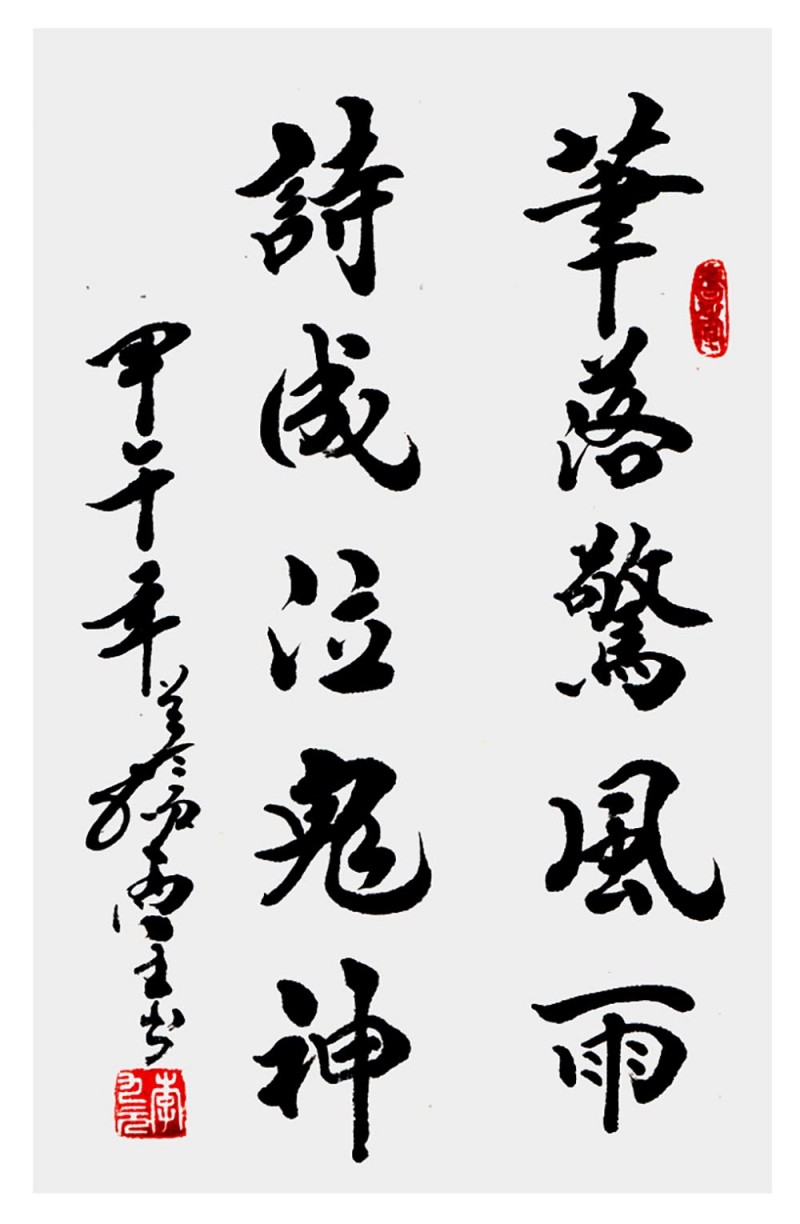 筆落驚風雨
詩成泣鬼神
甲午年